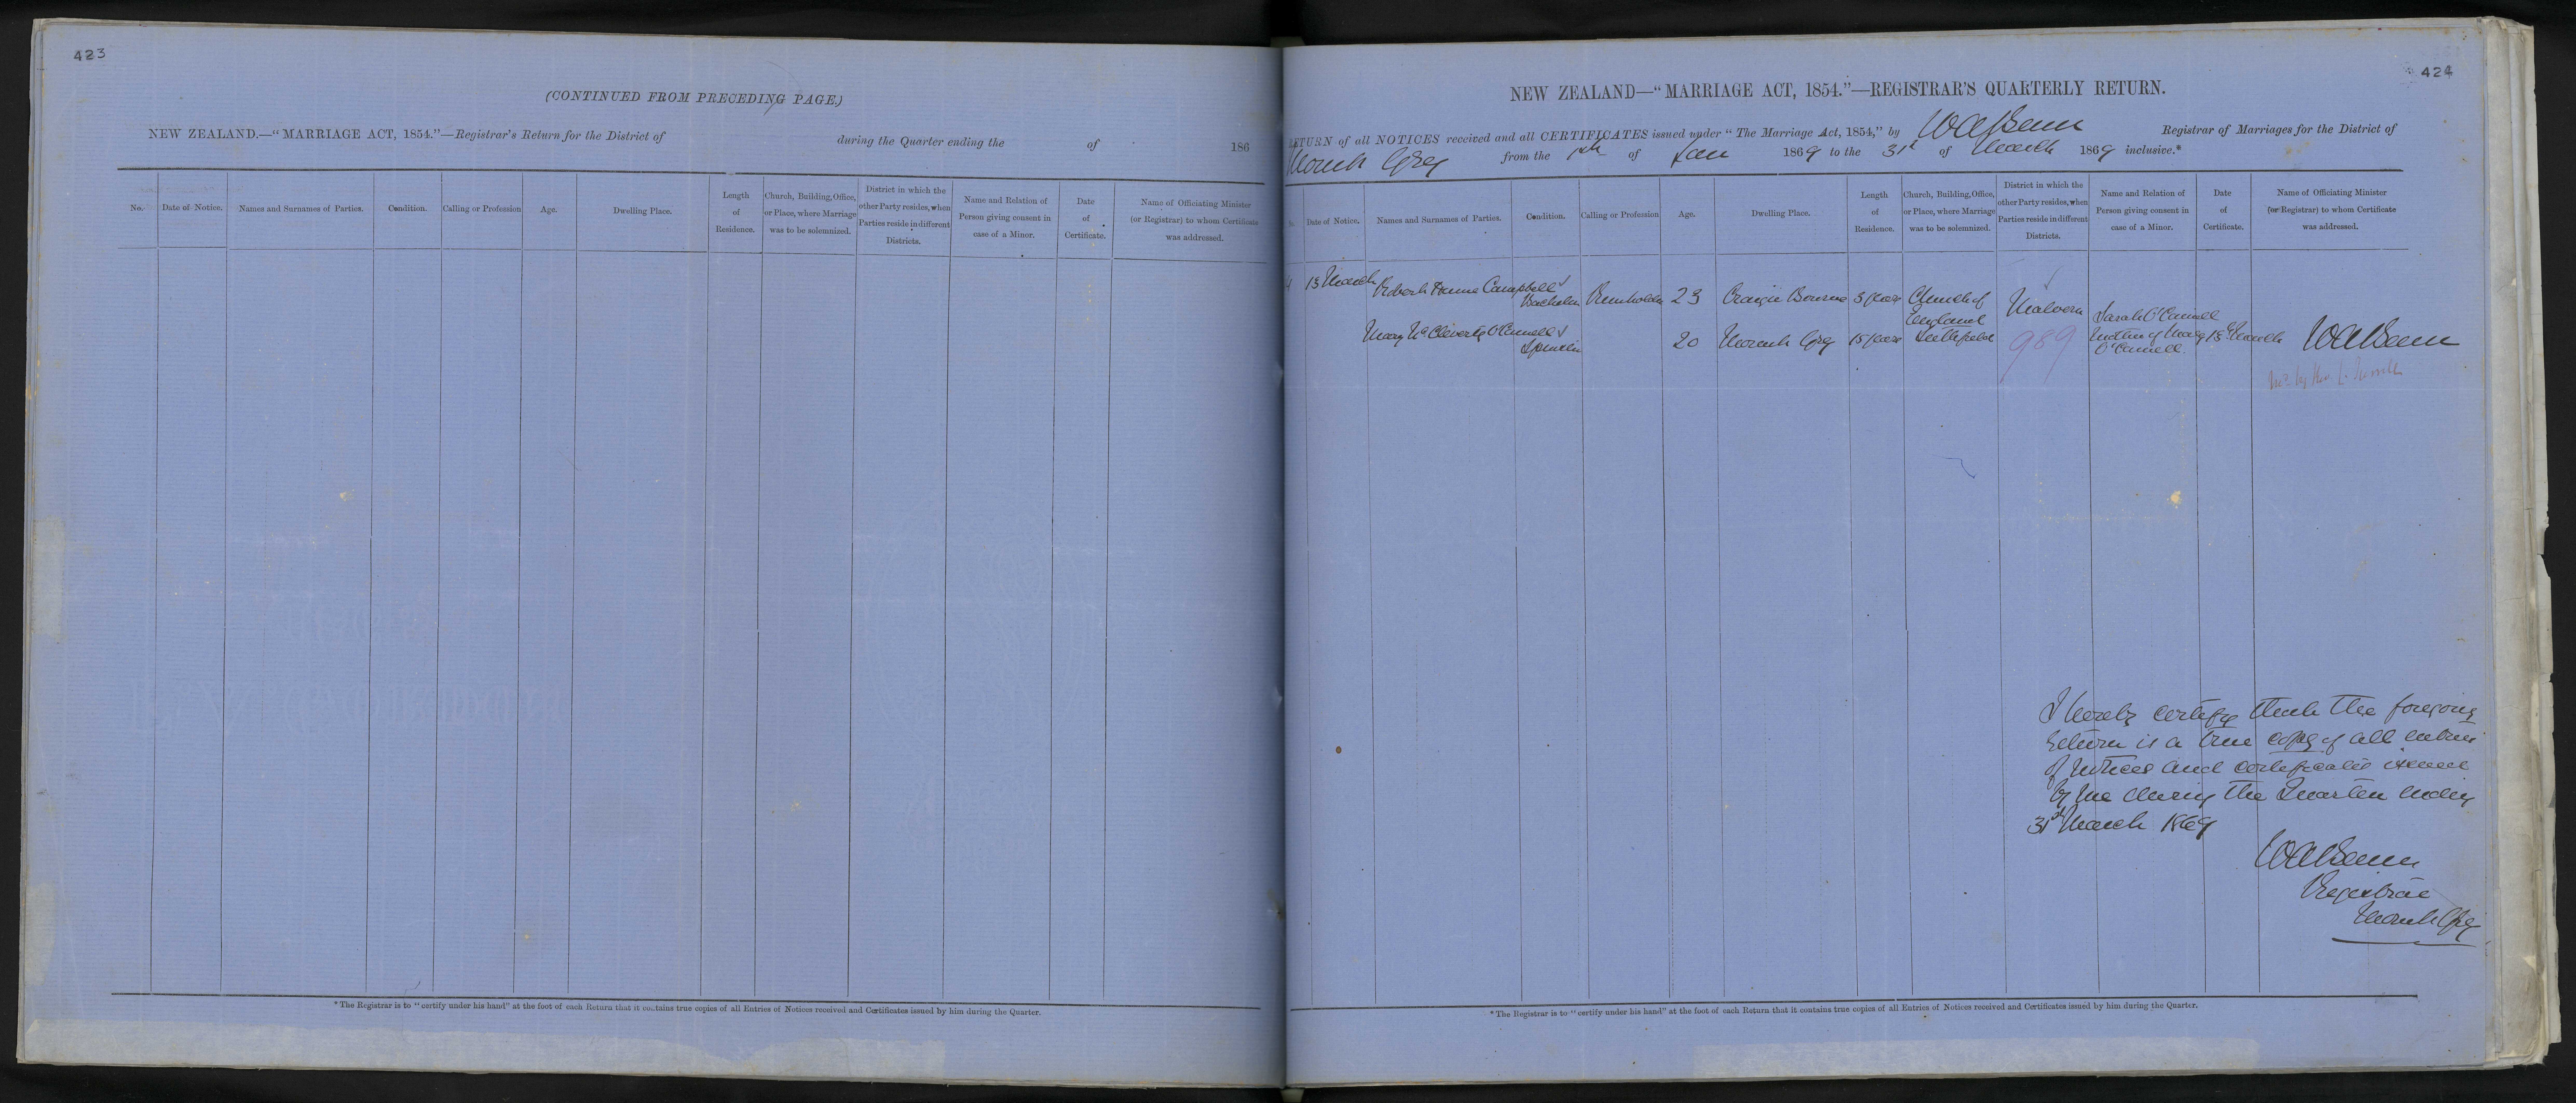 423
(CONTINUED FROM PRECEDING PAGE.)
NEW ZEALAND.—"MARRIAGE ACT, 1854."—Registrar's Return for the District of during the Quarter ending the of 186
No. Date of Notice. Names and Surnames of Parties. Condition. Calling or Profession Age. Dwelling Place. Length of Residence. Church, Building, Office, or Place, where Marriage was to be solemnized. District in which the other Party resides, when Parties reside in different Districts. Name and Relation of Person giving consent in case of a Minor. Date of Certificate. Name of Officiating Minister (or Registrar) to whom Certificate was addressed.
*The Registrar is to "certify under his hand" at the foot of each Return that it contains true copies of all Entries of Notices received and Certificates issued by him during the Quarter.
424
NEW ZEALAND—"MARRIAGE ACT, 1854."—REGISTRAR'S QUARTERLY RETURN.
RETURN of all NOTICES received and all CERTIFICATES issued under "The Marriage Act, 1854," by Registrar of Marriages for the District of
Mount Grey from the of Jan 1869 to the 31st of March 1869 inclusive.*
No. Date of Notice. Names and Surnames of Parties. Condition. Calling or Profession Age. Dwelling Place. Length of Residence. Church, Building, Office, or Place, where Marriage was to be solemnized. District in which the other Party resides, when Parties reside in different Districts. Name and Relation of Person giving consent in case of a Minor. Date of Certificate. Name of Officiating Minister (or Registrar) to whom Certificate was addressed.
13 March Robert Campbell Bachelor Runholder 23 Craigie Bourne 3 years Church of England Malvern
Mary McCleverty O'Connell Spinster 20 Mount Grey 15 years Leithfield 989 Sarah O'Connell Mother of Mary O'Connell 13 March
I hereby certify that the foregoing
return is a true copy of all entries
of notices and certificates issued
by me during the Quarter ending
31st March 1869
Registrar
Mount Grey
*The Registrar is to "certify under his hand" at the foot of each Return that it contains true copies of all Entries of Notices received and Certificates issued by him during the Quarter.